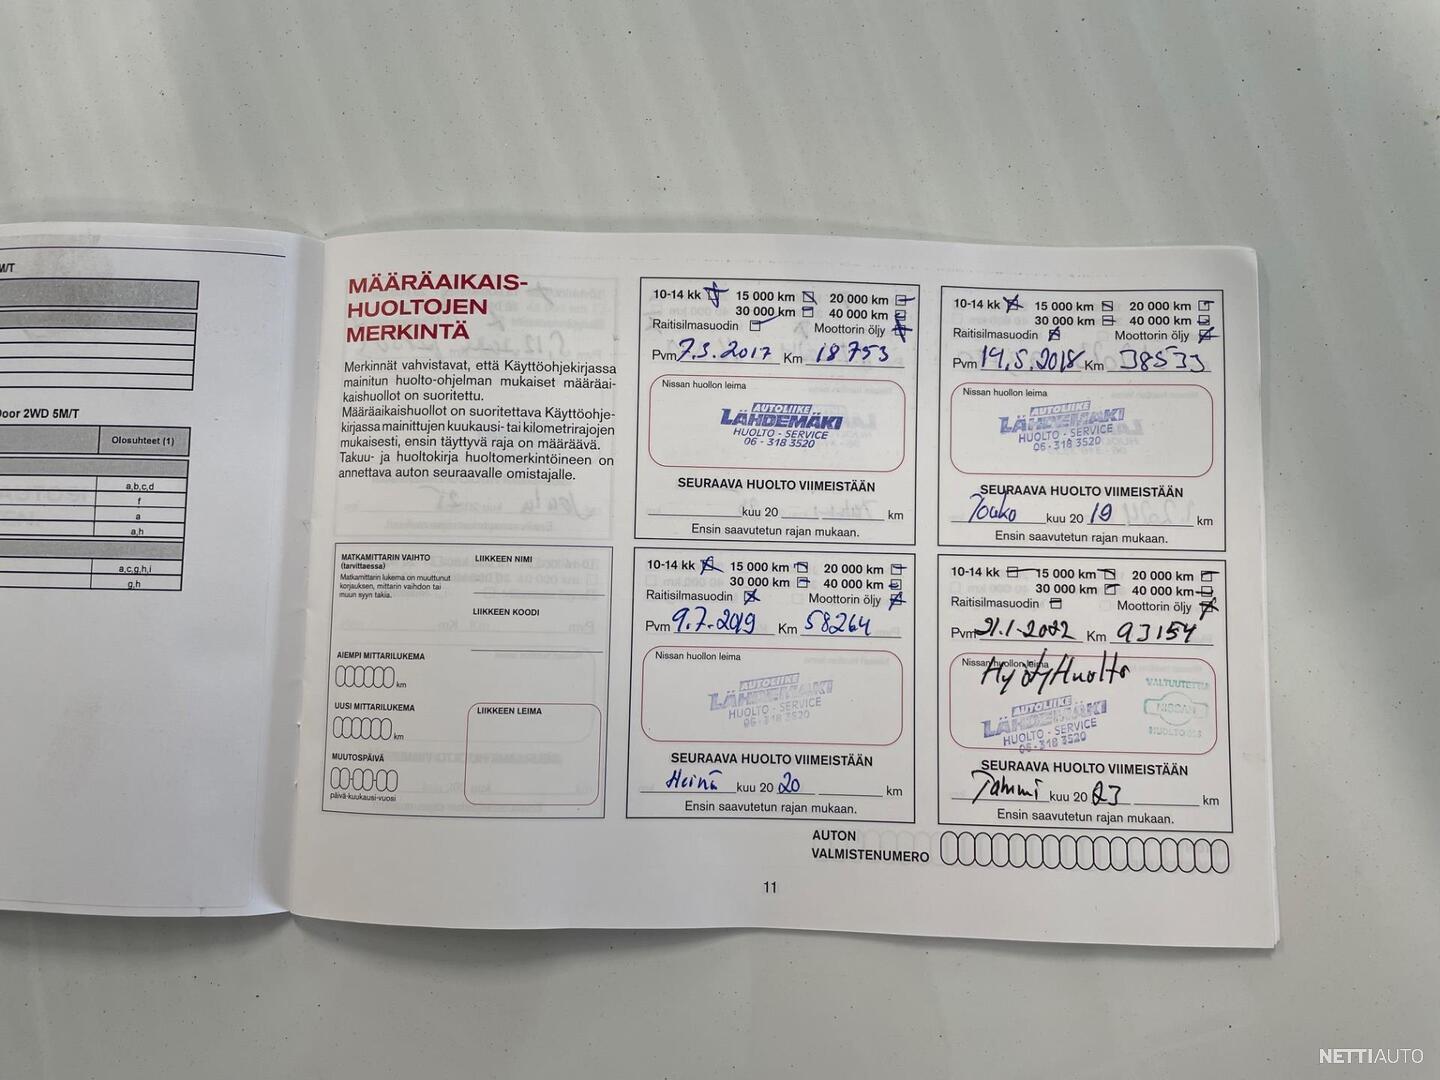 M/T
Door 2WD 5M/T
Olosuhteet (1)
a,b,c,d
f
a
a,h
a,c,g,h,i
g,h
MÄÄRÄAIKAIS-
HUOLTOJEN
MERKINTÄ
Merkinnät vahvistavat, että Käyttöohjekirjassa
mainitun huolto-ohjelman mukaiset määräai-
kaishuollot on suoritettu.
Määräaikaishuollot on suoritettava Käyttöohje-
kirjassa mainittujen kuukausi- tai kilometrirajojen
mukaisesti, ensin täyttyvä raja on määräävä.
Takuu- ja huoltokirja huoltomerkintöineen on
annettava auton seuraavalle omistajalle.
MATKAMITTARIN VAIHTO
(tarvittaessa)
Matkamittarin lukema on muuttunut
korjauksen, mittarin vaihdon tai
muun syyn takia.
AIEMPI MITTARILUKEMA
km
UUSI MITTARILUKEMA
km
MUUTOSPÄIVÄ
päivä-kuukausi-vuosi
LIIKKEEN NIMI
LIIKKEEN KOODI
LIIKKEEN LEIMA
10-14 kk 15 000 km 20 000 km
30 000 km 40 000 km
Raitisilmasuodin Moottorin öljy
Pvm 7.3.2017 Km 18753
Nissan huollon leima
AUTOLIIKE
LÄHDEMÄKI
HUOLTO - SERVICE
06 - 318 3520
SEURAAVA HUOLTO VIIMEISTÄÄN
kuu 20 km
Ensin saavutetun rajan mukaan.
10-14 kk 15 000 km 20 000 km
30 000 km 40 000 km
Raitisilmasuodin Moottorin öljy
Pvm 14.5.2018 Km 38533
Nissan huollon leima
AUTOLIIKE
LÄHDEMÄKI
HUOLTO - SERVICE
06 - 318 3520
SEURAAVA HUOLTO VIIMEISTÄÄN
Touko kuu 20 19 km
Ensin saavutetun rajan mukaan.
10-14 kk 15 000 km 20 000 km
30 000 km 40 000 km
Raitisilmasuodin Moottorin öljy
Pvm 9.7.2019 Km 58264
Nissan huollon leima
AUTOLIIKE
LÄHDEMÄKI
HUOLTO - SERVICE
06 - 318 3520
SEURAAVA HUOLTO VIIMEISTÄÄN
Heinä kuu 20 20 km
Ensin saavutetun rajan mukaan.
10-14 kk 15 000 km 20 000 km
30 000 km 40 000 km
Raitisilmasuodin Moottorin öljy
Pvm 21.1.2022 Km 93154
Nissan huollon leima
HyötyHuolto
VALTUUTETTU
NISSAN
AUTOLIIKE
LÄHDEMÄKI
HUOLTO - SERVICE
06 - 318 3520
SEURAAVA HUOLTO VIIMEISTÄÄN
Tammi kuu 20 23 km
Ensin saavutetun rajan mukaan.
AUTON
VALMISTENUMERO
11
NETTIAUTO